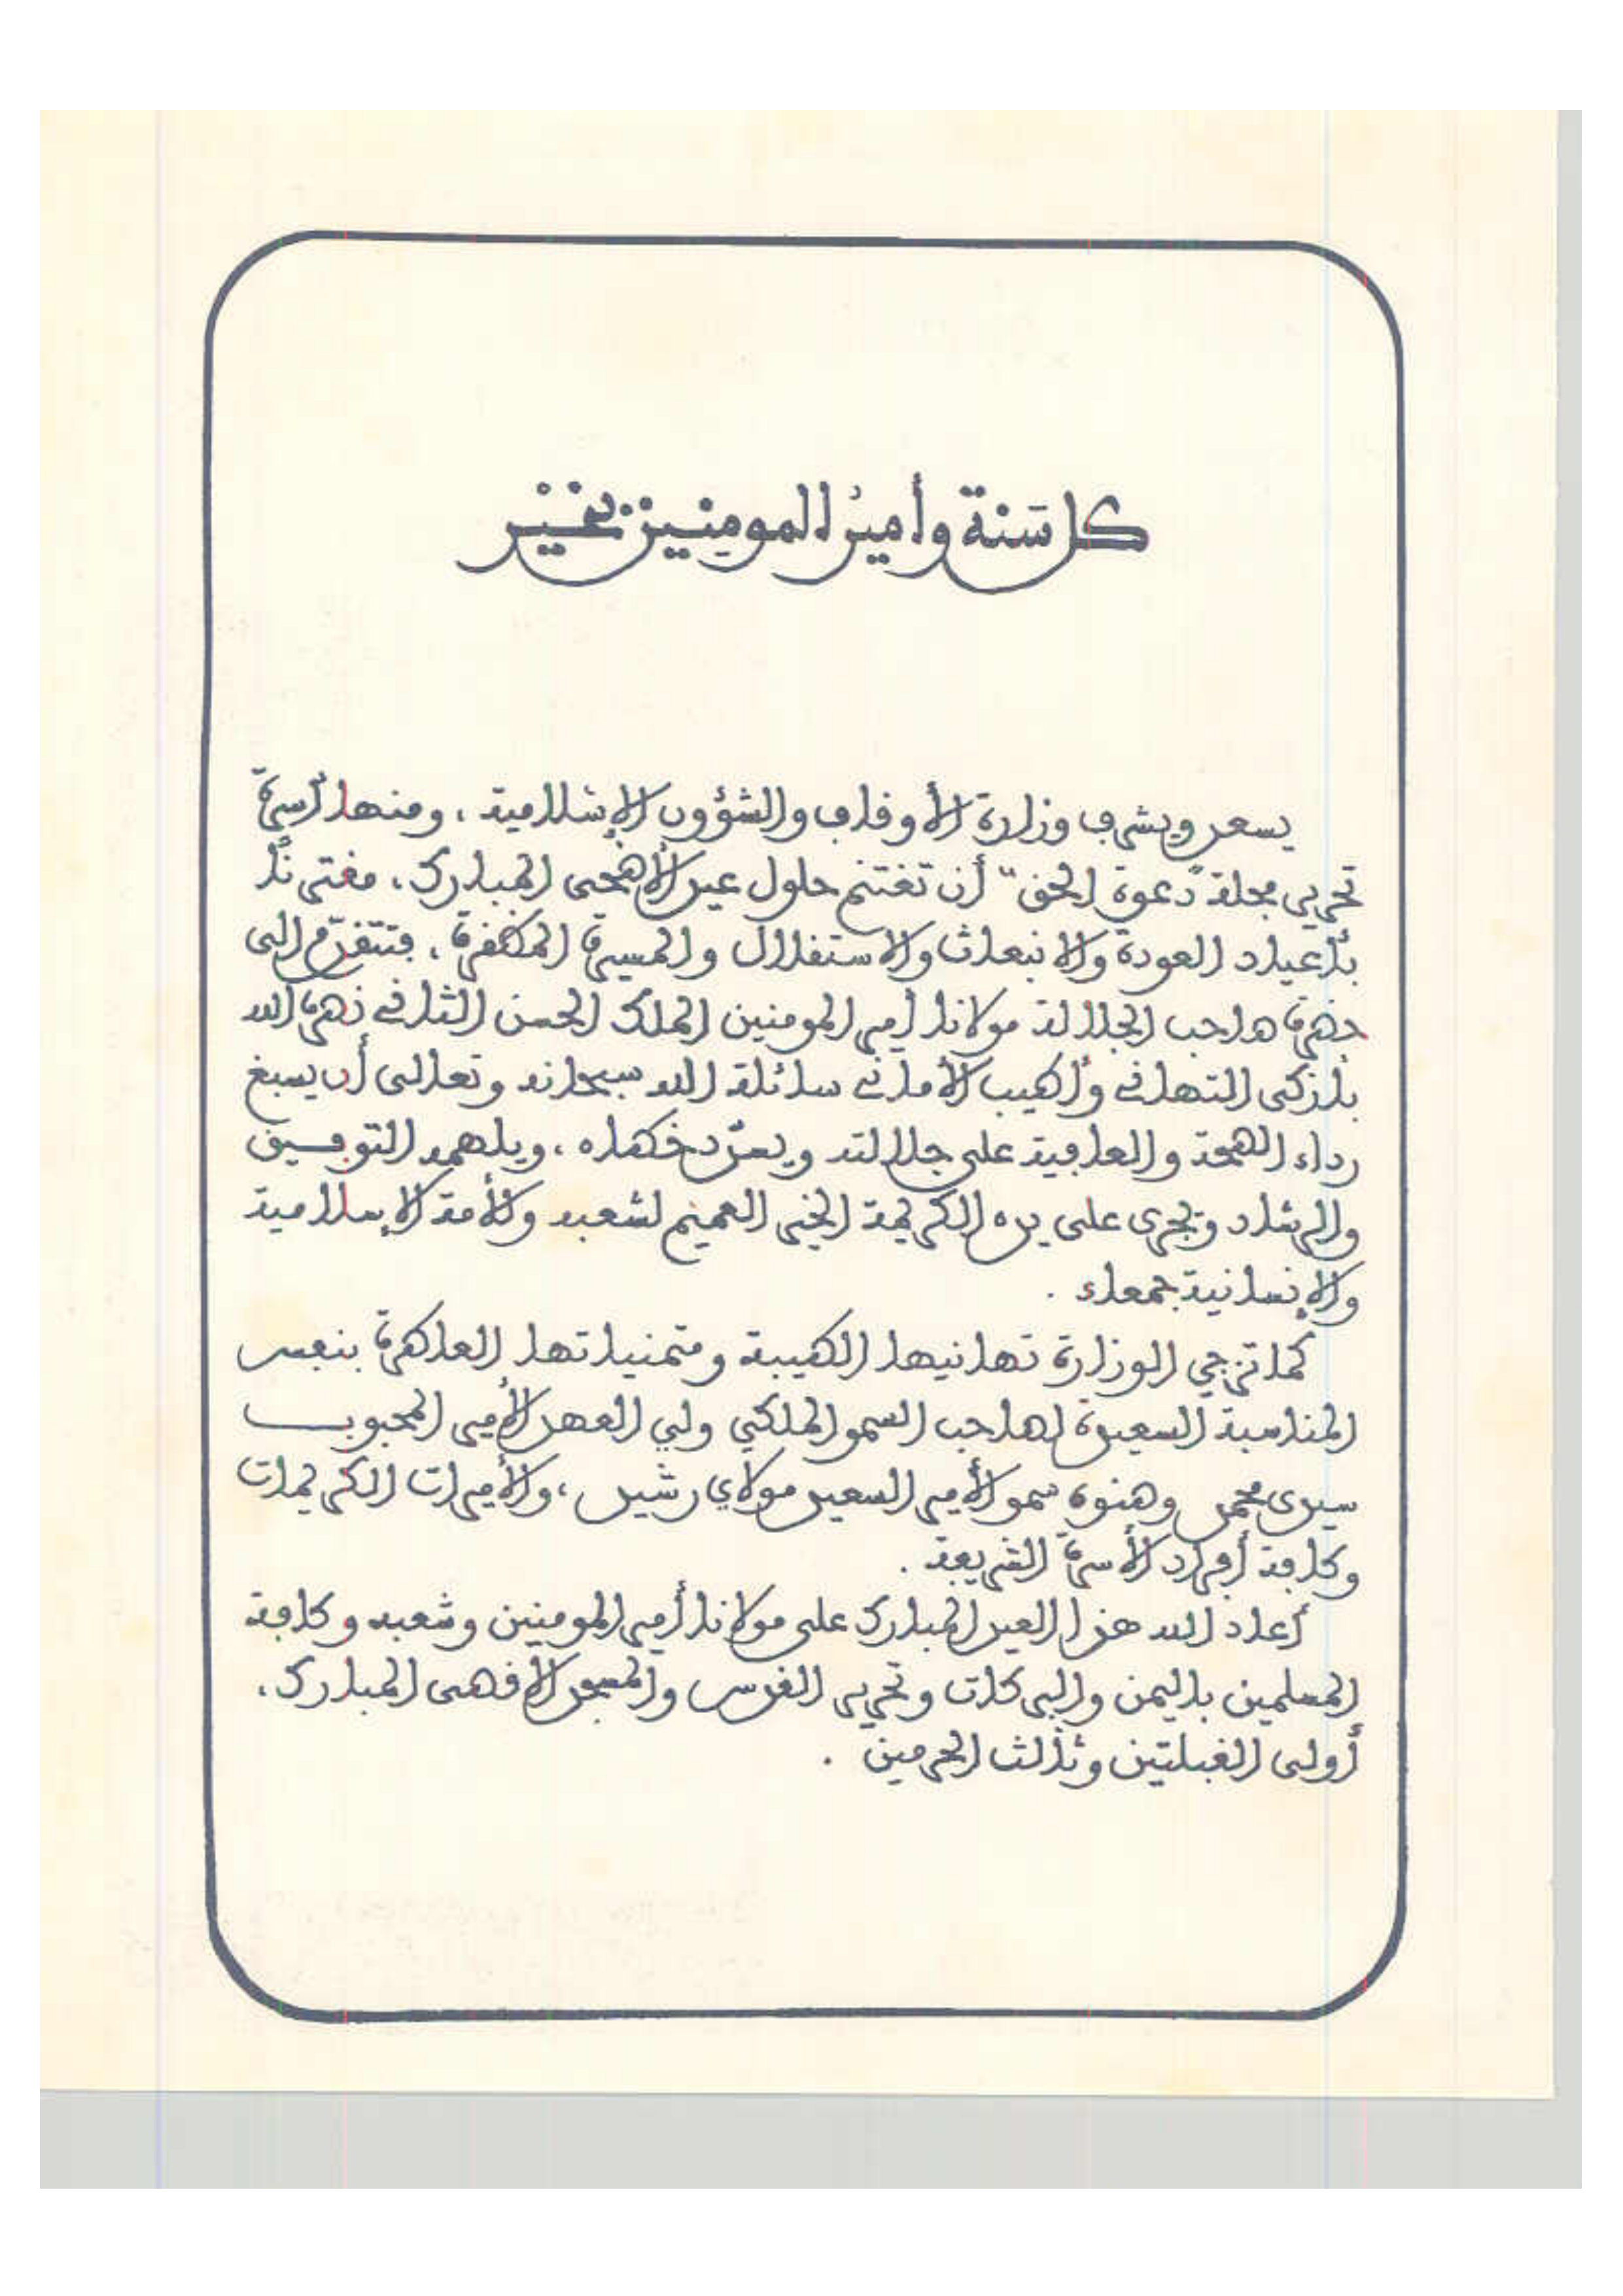 كل سنة وأمير المومنين بخير
يسعد ويشرف وزارة الأوقاف والشؤون الإسلامية، ومنها أسرة
تحرير مجلة "دعوة الحق" أن تغتنم حلول عيد الأضحى المبارك، مقترنا
بأعياد العودة والانبعاث والاستقلال والمسيرة المظفرة، فتتقدم إلى
حضرة صاحب الجلالة مولانا أمير المومنين الملك الحسن الثاني نصره الله
بأزكى التهاني وأطيب الأماني سائلة الله سبحانه وتعالى أن يسبغ
رداء الصحة والعافية على جلالته ويعز خطاه، ويلهمه التوفيق
والرشاد ويجري على يده الكريمة الخير العميم لشعبه وللأمة الإسلامية
والإنسانية جمعاء.
كما تزجي الوزارة تهانيها الطيبة ومتمنياتها العاطرة بنفس
المناسبة السعيدة لصاحب السمو الملكي ولي العهد الأمير المحبوب
سيدي محمد وصنوه سمو الأمير السعيد مولاي رشيد، والأميرات الكريمات
وكافة أفراد الأسرة الشريفة.
أعاد الله هذا العيد المبارك على مولانا أمير المومنين وشعبه وكافة
المسلمين باليمن والبركات وتحرير القدس والمسجد الأقصى المبارك،
أولى القبلتين وثالث الحرمين.